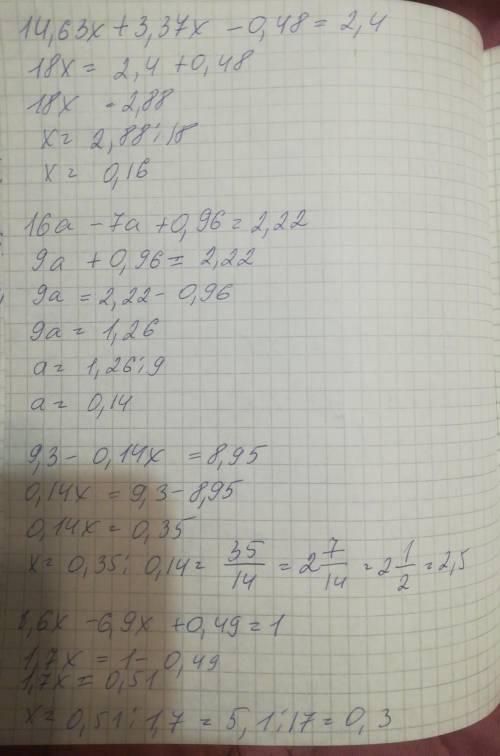 14,63x + 3,37x - 0,48 = 2,4
18x = 2,4 + 0,48
18x - 2,88
x = 2,88 : 18
x = 0,16
16a - 7a + 0,96 = 2,22
9a + 0,96 = 2,22
9a = 2,22 - 0,96
9a = 1,26
a = 1,26 : 9
a = 0,14
9,3 - 0,14x = 8,95
0,14x = 9,3 - 8,95
0,14x = 0,35
x = 0,35 : 0,14 = 35/14 = 2 7/14 = 2 1/2 = 2,5
8,6x - 6,9x + 0,49 = 1
1,7x = 1 - 0,49
1,7x = 0,51
x = 0,51 : 1,7 = 5,1 : 17 = 0,3